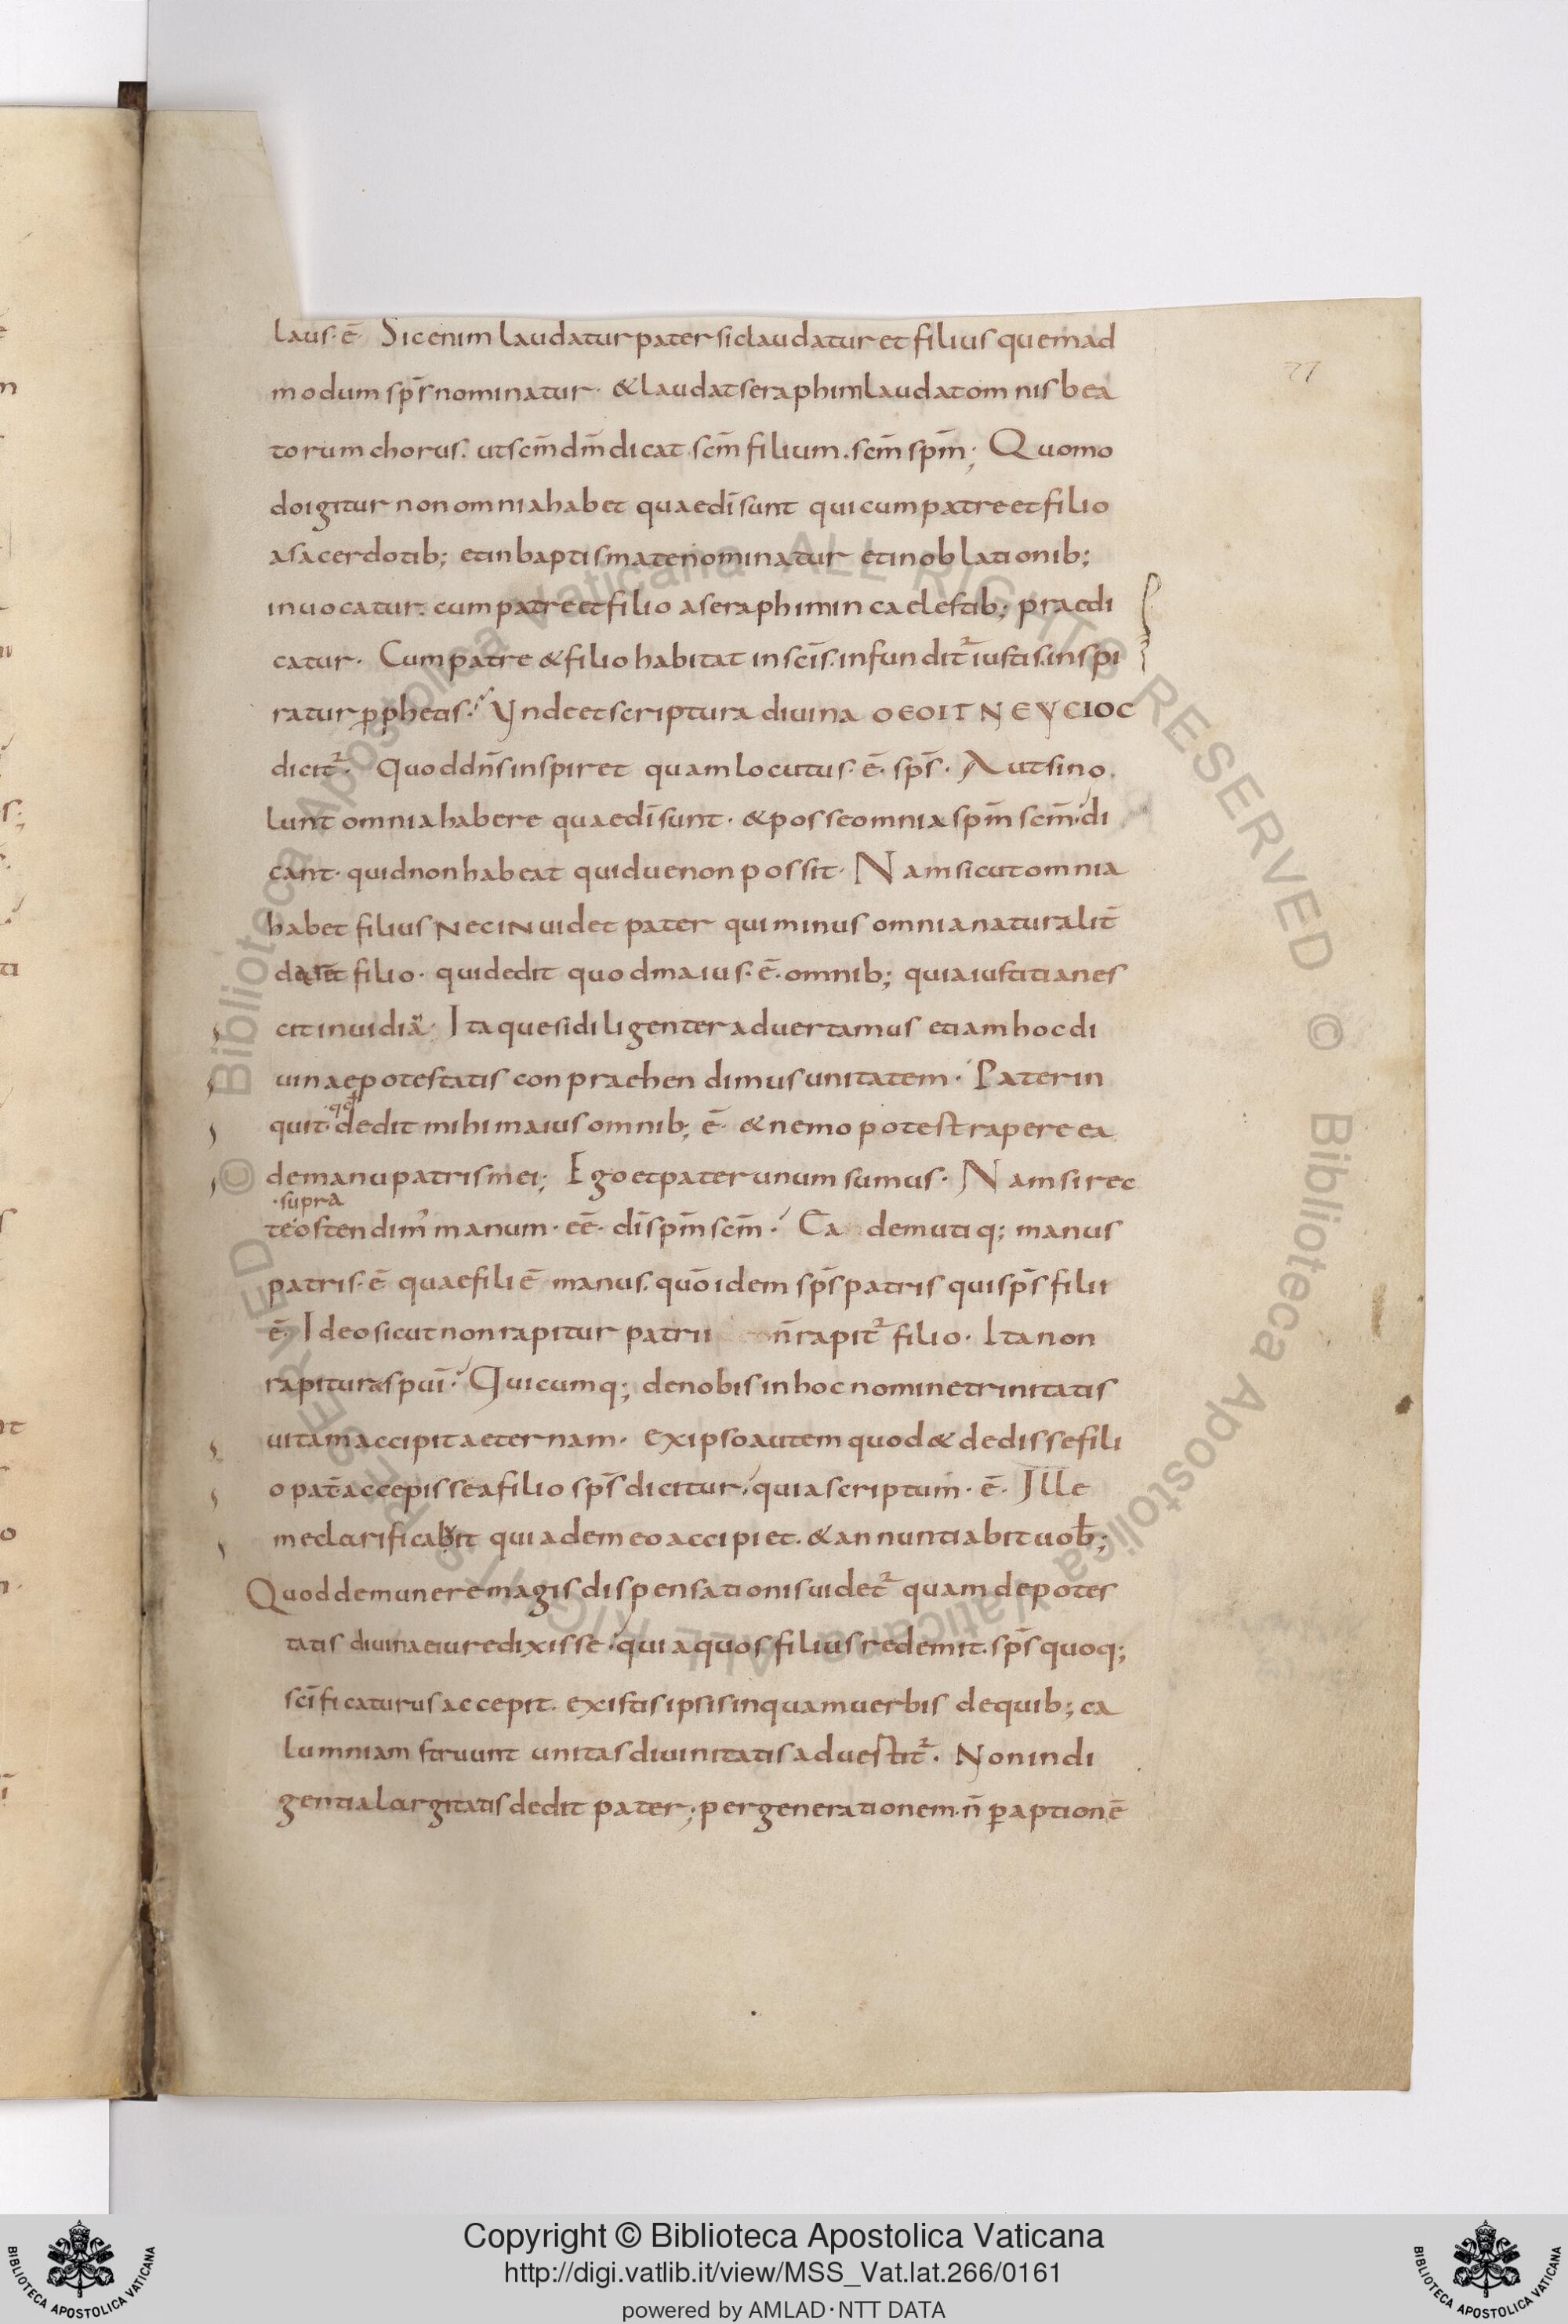 laus·ē· Sicenim laudaturpatersiclaudaturet filius quemad
modum sp̄s nominatur· & laudatseraphimlaudatomnisbea
torumchorus. utscm̄dm̄dicat scm̄ filium. scm̄ sp̄m; Quomo
doigitur nonomniahabet quaedīsunt quicumpatreetfilio
asacerdotib; etinbaptismatenominatur etinoblationib;
inuocatur. cumpatreetfilio aseraphimin caelestib; praedi
catur· Cumpatre & filio habitat in scīs. infunditur iustis. inspi
ratur pphetis. Vndeetscriptura diuina ΘΕΟΙΤΝΕΥCΙΟC
dicit᷑· Quoddn̄sinspiret quamlocutus·ē· sp̄s· Autsino
lunt omniahabere quaedīsunt· & posseomnia sp̄m scm̄. di
cant· quidnonhabeat quiduenonpossit· Namsicutomnia
habet filius necinuidet pater quiminus omnianaturalit̄
filio· quidedit quodmaius·ē·omnib; quiaiustitianes
citinuidiā· Itaquesidiligenteraduertamus etiamhocdi
uinaepotestatis conpraehendimusunitatem· Paterin
quit· qd̄ dedit mihimaiusomnib; ē· & nemopotestrapere ea
demanupatrismei; Egoetpaterunumsumus· Namsirec
·supra
teostendim᷒ manum·eē· dīsp̄mscm̄· Ea demutiq; manus
patris·ē quaefiliē manus. quōidem sp̄spatris quisp̄sfilii
ē· Ideosicutnonrapitur patrii n̄rapit᷑ filio· Itanon
rapitur spui· Quicumq; denobisinhocnominetrinitatis
uitamaccipitaeternam· exipsoautemquod&dedissefili
o pat̄accepisseafilio sp̄sdicitur. quiascriptum·ē· Ille
meclarificabit quiademeoaccipiet. & annuntiabituob̄;
Quoddemuneremagisdispensationisuidet᷑ quamdepotes
tatis diuinaeiuredixisse. quiaquosfiliusredemit. sp̄squoq;
scīficaturusaccepit. existisipsisinquamuerbis dequib; ca
lumniam struunt unitasdiuinitatisaduestit᷑· Nonindi
gentialargitatisdedit pater; pergenerationem·n̄ p̱aptionē
Copyright © Biblioteca Apostolica Vaticana
http://digi.vatlib.it/view/MSS_Vat.lat.266/0161
powered by AMLAD·NTT DATA
BIBLIOTECA APOSTOLICA VATICANA
BIBLIOTECA APOSTOLICA VATICANA
© Biblioteca Apostolica Vaticana ALL RIGHTS RESERVED © Biblioteca Apostolica Vaticana ALL RIGHTS RESERVED